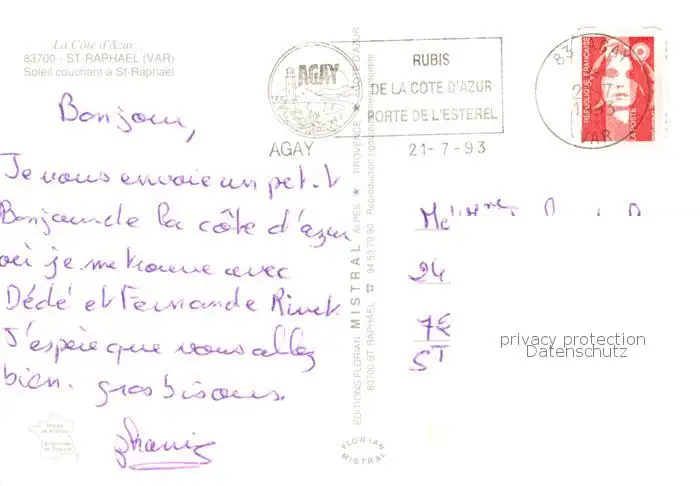 La Côte d'Azur
83700 - ST-RAPHAEL (VAR)
Soleil couchant à St-Raphaël
AGAY
AGAY
RUBIS
DE LA COTE D'AZUR
PORTE DE L'ESTEREL
21-7-93
83 AGAY
21-7
93
VAR
REPUBLIQUE FRANÇAISE
LA POSTE
Bonjour,
Je vous envoie un petit
Bonjour de la côte d'azur
où je me trouve avec
Dédé et Fernande Rivet.
J'espère que vous allez
bien. gros bisous.
EDITIONS FLORIAN MISTRAL ★ ALPES ★ PROVENCE ★ COTE D'AZUR
83700 ST RAPHAEL ☎ 94 53 70 90 Reproduction rigoureusement interdite
24
ST
privacy protection
Datenschutz
Image
de France
Imprimée
en France
FLORIAN
MISTRAL